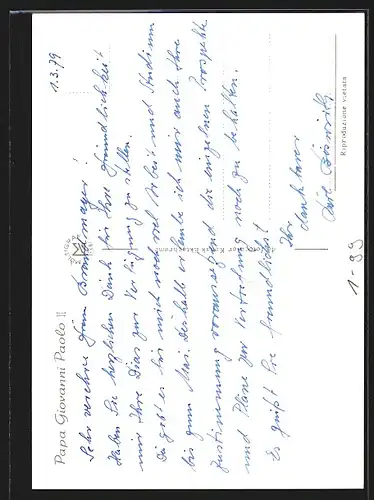 Papa Giovanni Paolo II
1.3.79
Sehr verehrte Frau Brandlmayer!
Haben Sie herzlichen Dank für Ihre Freundlichkeit
mir Ihre Dias zur Verfügung zu stellen.
Da geht es für mich noch viel Arbeit und Studium
bis zum Mai. Deshalb erlaube ich mir auch Ihre
Zustimmung voraussetzend die einzelnen Prospekte
und Pläne zur Vertiefung noch zu behalten.
Es grüßt Sie freundlichst
Ihr
dankbarer
Riproduzione vietata
1-89